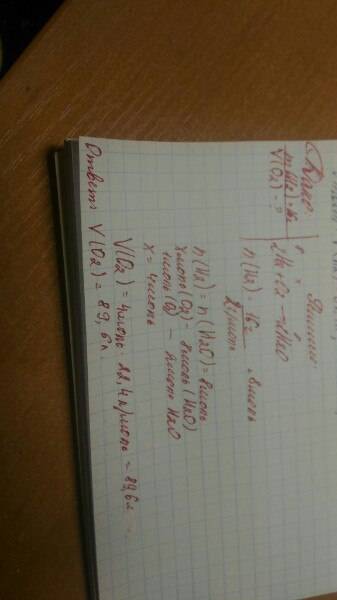 Дано
m(H2)=16г
V(O2) - ?
Решение
2H2+O2→2H2O
n(H2) = 16г
2г/моль
8моль
n(H2) = n(H2O) = 8моль
xмоль(O2) - 8моль(H2O)
1моль(O2) - 2моль H2O
x = 4моль
V(O2) = 4моль · 22,4л/моль = 89,6л
Ответ: V(O2) = 89,6л